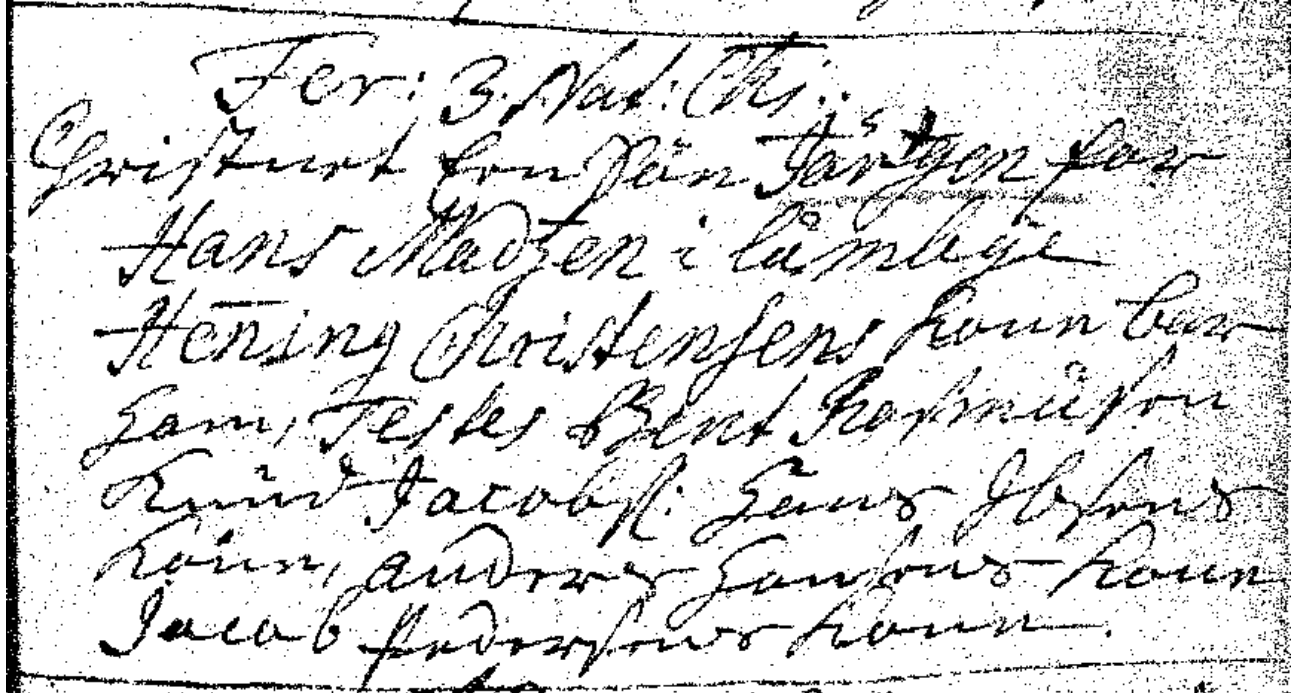 Fer: 3. Nat: Chi:
Christnet hen Sön Jörgen for
Hans Madzen i låmbÿe
Hening Christensens koun bar
ham, Testes Bent Rasmusen
Knud Jacobss: Hans Ibsens
koun, anders Hansens koun
Jacob Pedersens koun.